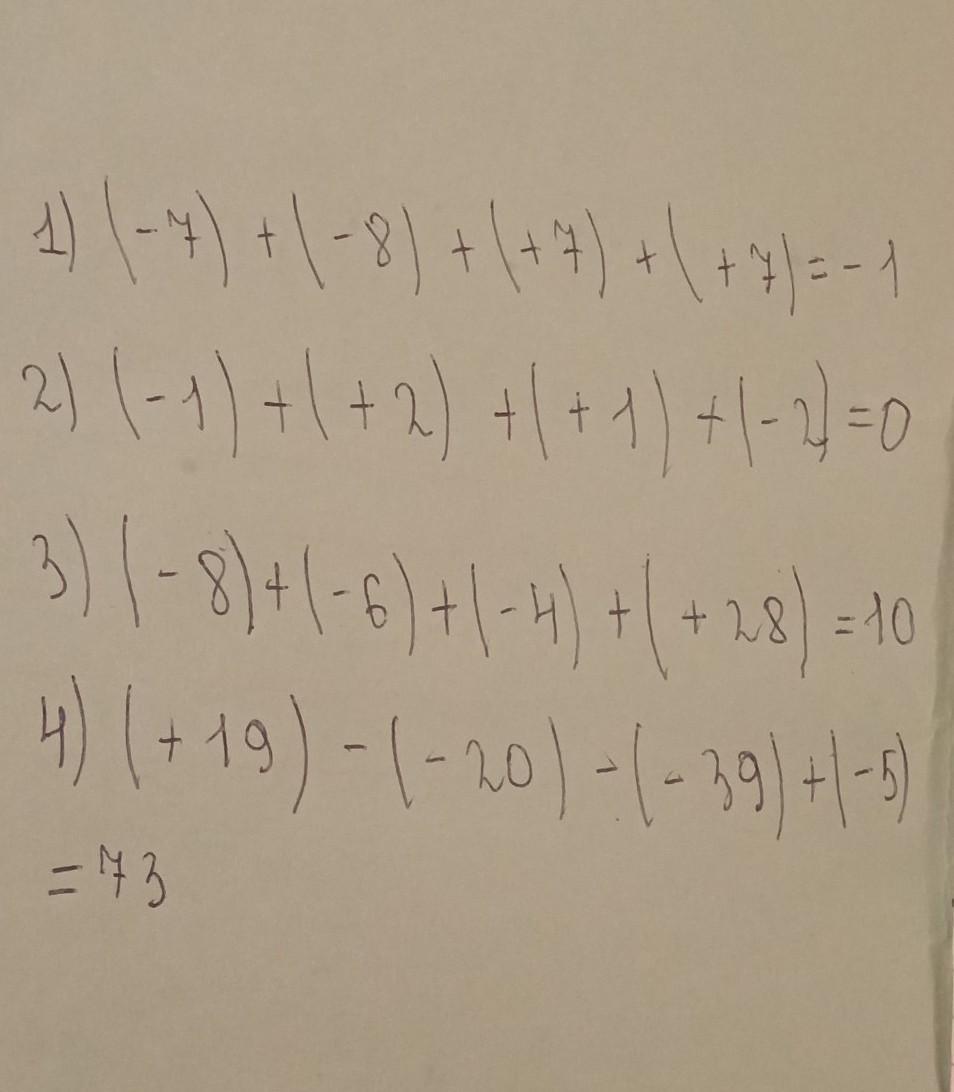 1) (-7) + (-8) + (+7) + (+7) = -1
2) (-1) + (+2) + (+1) + (-2) = 0
3) (-8) + (-6) + (-4) + (+28) = 10
4) (+19) - (-20) - (-39) + (-5)
= 73